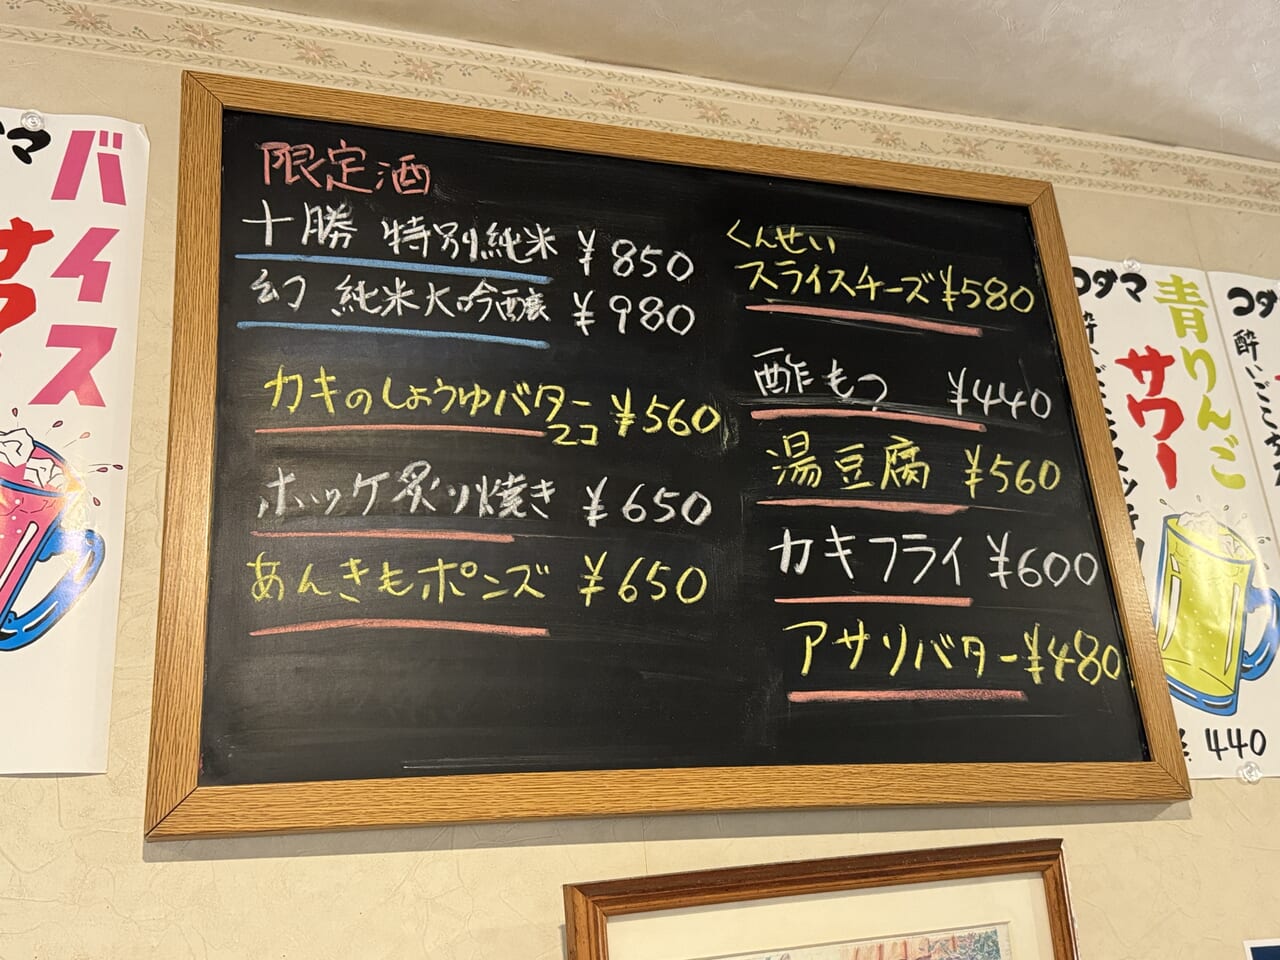 限定酒
十勝 特別純米 ¥850
幻 純米大吟醸 ¥980
カキのしょうゆバター 2コ ¥560
ホッケ炙り焼き ¥650
あんきもポンズ ¥650
くんせい
スライスチーズ ¥580
酢もつ ¥440
湯豆腐 ¥560
カキフライ ¥600
アサリバター ¥480
バイス
サワ
コダマ
青りんご
サワー
440
コダ
酔いごこ